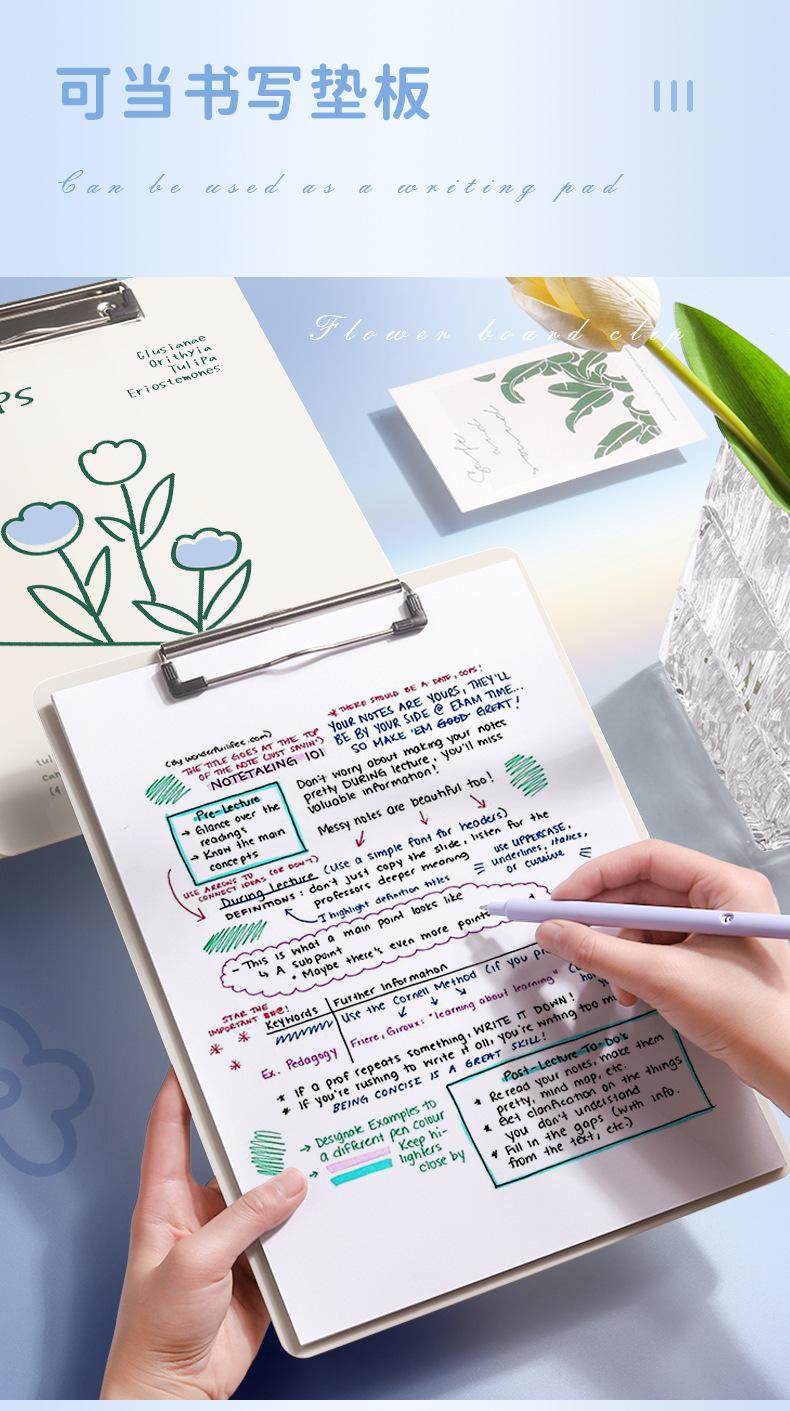 可当书写垫板
Can be used as a writing pad
Flower board clip
PS
Clusianae
Orithyia
TuliPa
Eriostemones
Safe
and
sound
(By wonderfullifee.com)
THE TITLE GOES AT THE TOP
OF THE NOTE (JUST SAYIN')
NOTETAKING 101
* THERE SHOULD BE A DATE, OOPS!
YOUR NOTES ARE YOURS, THEY'LL
BE BY YOUR SIDE @ EXAM TIME...
SO MAKE 'EM GOOD GREAT!
Pre-Lecture
→ Glance over the
readings
→ Know the main
concepts
Don't worry about making your notes
pretty DURING lecture, you'll miss
valuable information!
Messy notes are beautiful too!
USE ARROWS TO
CONNECT IDEAS (OR DON'T)
During lecture (use a simple font for headers)
DEFINITIONS: don't just copy the slide, listen for the
professors deeper meaning
I highlight definition titles
use UPPERCASE,
underlines, italics,
or cursive
- This is what a main point looks like
↳ A subpoint
• Maybe there's even more points
STAR THE
IMPORTANT
Keywords
Further information
Use the Cornell Method (if you
Ex. Pedagogy
Friere, Giroux: "learning about learning"
* If a prof repeats something, WRITE IT DOWN!
* If you're rushing to write it all, you're writing too
BEING CONCISE IS A GREAT SKILL!
→ Designate Examples to
a different pen colour
→ Keep hi-
lighters
close by
Post-Lecture To-Do's
* Reread your notes, make them
pretty, mind map, etc.
* Get clarification on the things
you don't understand
* Fill in the gaps (with info.
from the text, etc.)